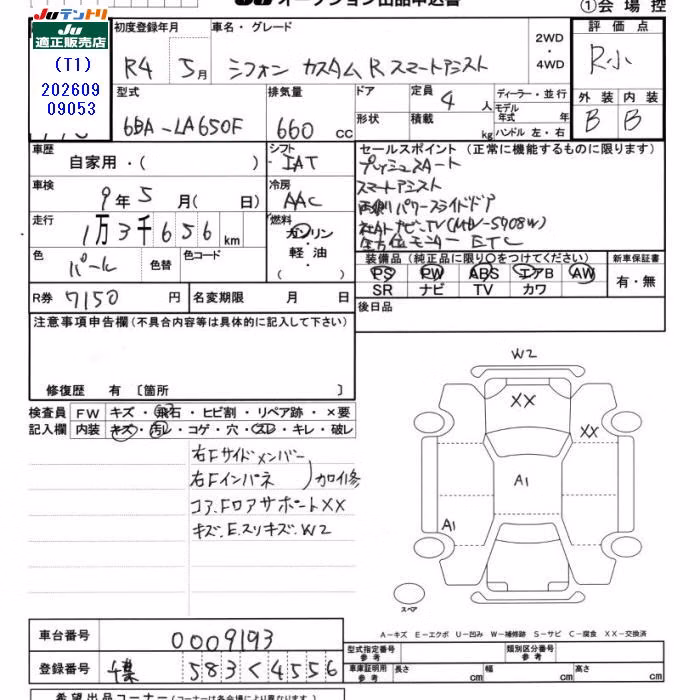 Juテントリ
Ju
適正販売店
(T1)
202609
09053
JU オークション出品申込書
①会場控
初度登録年月
R4 5月
車名・グレード
シフォン カスタム R スマートアシスト
2WD
・
4WD
評価点
R小
外装 内装
B B
型式
6BA-LA650F
排気量
660 cc
ドア
形状
定員 4 人
積載 kg
ディーラー・並行
モデル年式 年
ハンドル 左・右
車歴
自家用・( )
シフト
IAT
セールスポイント (正常に機能するものに限ります)
プッシュスタート
スマートアシスト
両側パワースライドドア
全方位モニター ETC
車検
9年5月( 日)
冷房
AAC
走行
1万3千656km
燃料
ガソリン
・
軽油
色
パール
色替
色コード
装備品 (純正品に限り○をつけてください)
PS PW ABS エアB AW
SR ナビ TV カワ
新車保証書
有・無
R券 7150円
名変期限 月 日
後日品
注意事項申告欄(不具合内容等は具体的に記入して下さい)
修復歴 有 〔箇所 〕
検査員記入欄
FW キズ・飛石・ヒビ割・リペア跡・×要
内装 キズ・汚レ・コゲ・穴・スレ・キレ・破レ
右Fサイドメンバー
右Fインパネ
加修
コア.Fロアサポート XX
キズ.E.スリキズ.W2
W2
XX
XX
A1
A1
スペア
A-キズ E-エクボ U-凹み W-補修跡 S-サビ C-腐食 XX-交換済
車台番号
0009193
登録番号
千葉 583く4556
型式指定番号
参考
類別区分番号
参考
車庫証明用
参考
長さ cm
幅 cm
高さ cm
希望出品コーナー(コーナーは各会場により異なります)